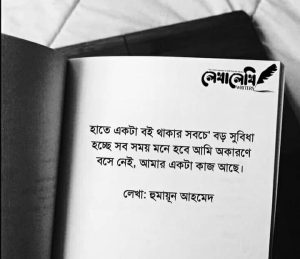 লেখালেখি
WRITERS
হাতে একটা বই থাকার সবচে' বড় সুবিধা
হচ্ছে সব সময় মনে হবে আমি অকারণে
বসে নেই, আমার একটা কাজ আছে।
লেখা: হুমায়ূন আহমেদ